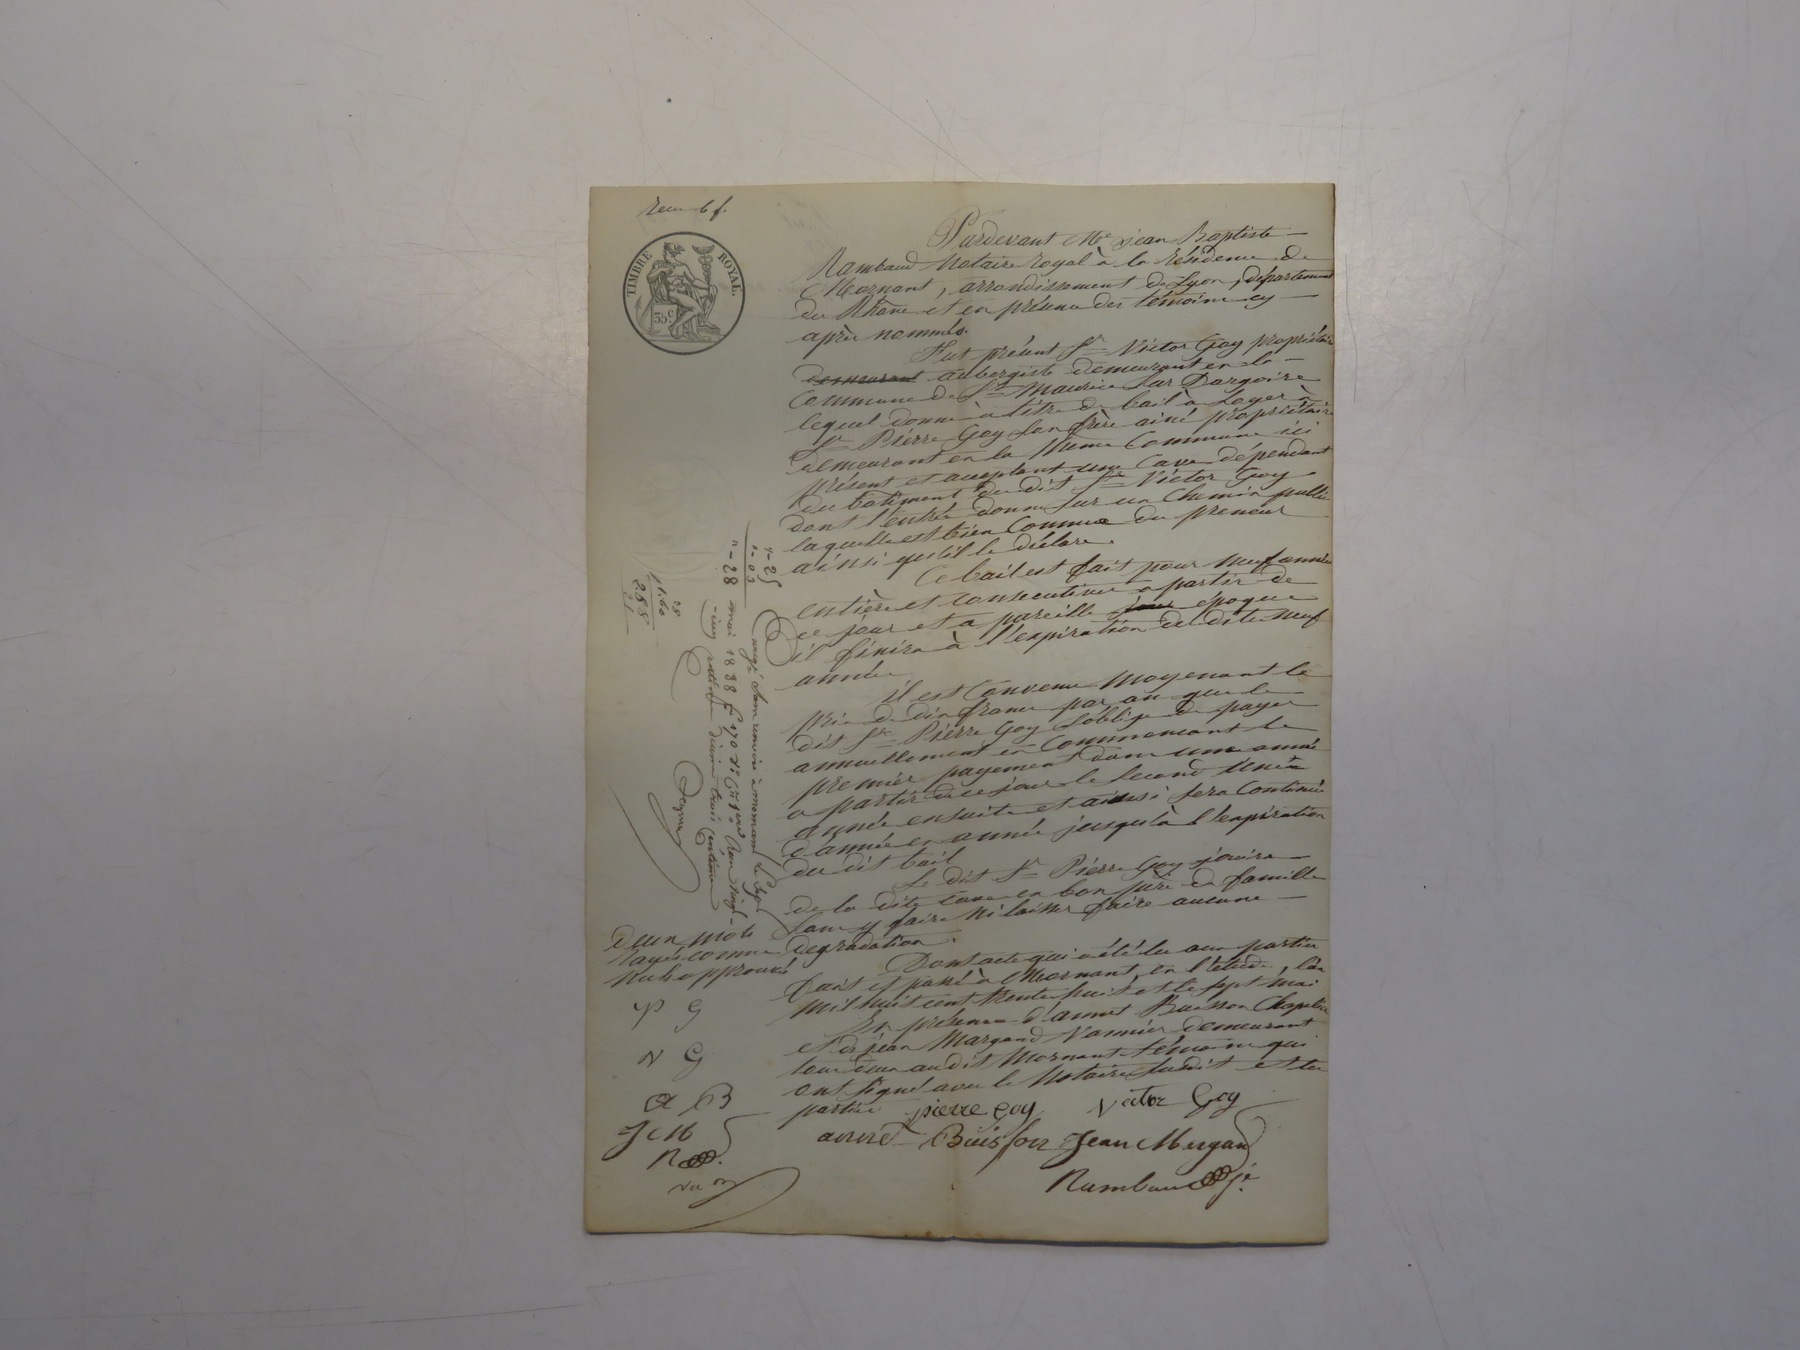 Recu 6 f.
TIMBRE ROYAL.
35 c
Pardevant Me jean Baptiste
Rambaud Notaire Royal à la résidence de
Mornant, arrondissement de Lyon, département
du Rhône et en présence des témoins cy
après nommés.
Fut présent Sr Victor Goy propriétaire
demeurant aubergiste demeurant en la
Commune de St Maurice sur Dargoire
lequel donne à titre de bail à Loyer à
Sr Pierre Goy son frère ainé propriétaire
demeurant en la Meme Commune ici
présent et acceptant une Cave dépendant
du batiment du dit Sr Victor Goy
dont l'entrée donne sur un Chemin public
laquelle est bien Connue du preneur
ainsi qu'il le déclare.
Ce bail est fait pour Neuf années
entière et consecutives a partir de
ce jour et a pareille jour époque
il finira à l'expiration des dite neuf
années
il est Convenu Moyenant le
prix de dix francs par an que le
dit Sr Pierre Goy s'oblige de payer
annuellement en Commencant le
premier payement dans une année
a partir de ce jour le second une
année ensuite et ainsi sera Continué
d'année en année jusqu'à l'expiration
du dit bail
Le dit Sr Pierre Goy jouira
de la dite Cave en bon père de famille
Sans y faire Ni laisser faire aucune
degradation.
Dont acte qui a été lu aux parties
fait et passé à Mornant, en l'étude, l'an
Mil huit cent trente huit et le sept mai
En présence d'annet Buisson Chapelier
et de jean Margand Vannier demeurant
tous deux au dit Mornant témoins qui
ont signé avec le Notaire susdit et les
parties
pierre goy Victor Goy
Buisson Jean Mergand
Rambaud
2-25
2-03
2-28
28
1,60
288
21
Enregé sans renvoi à mornant Le
mai 1838 f° 170
cinq centimes dixième trois centimes
deux mots
rayés comme
nuls approuvés
P G
V G
A B
J M
R